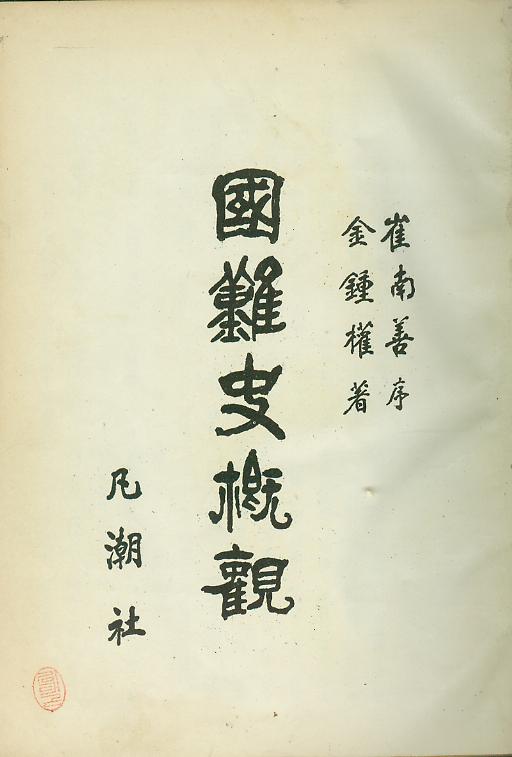 崔南善序
金鍾權著
國難史概觀
凡潮社